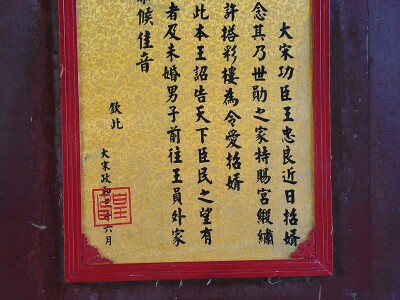 大宋功臣王忠良近日招婿
念其乃世勋之家特赐宫缎绣
许搭彩楼為令愛招婿
此本王詔告天下臣民之望有
者及未婚男子前往王員外家
候佳音
欽此
大宋政和
六月